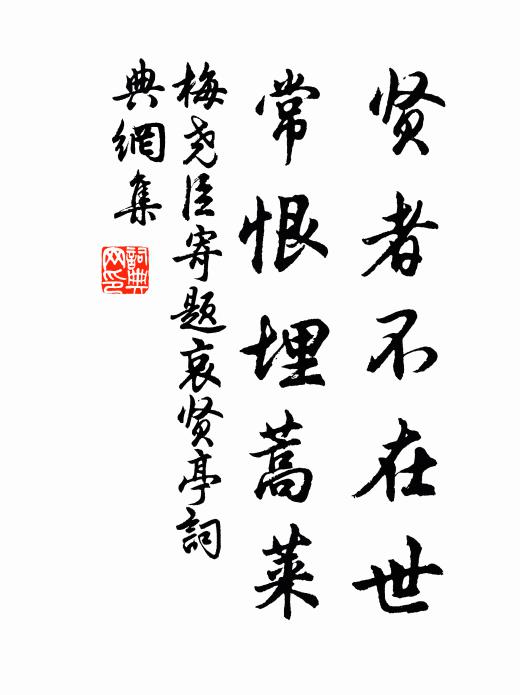 贤者不在世
常恨埋蒿莱
梅尧臣寄题哀贤亭詞
典網集
詞典网印